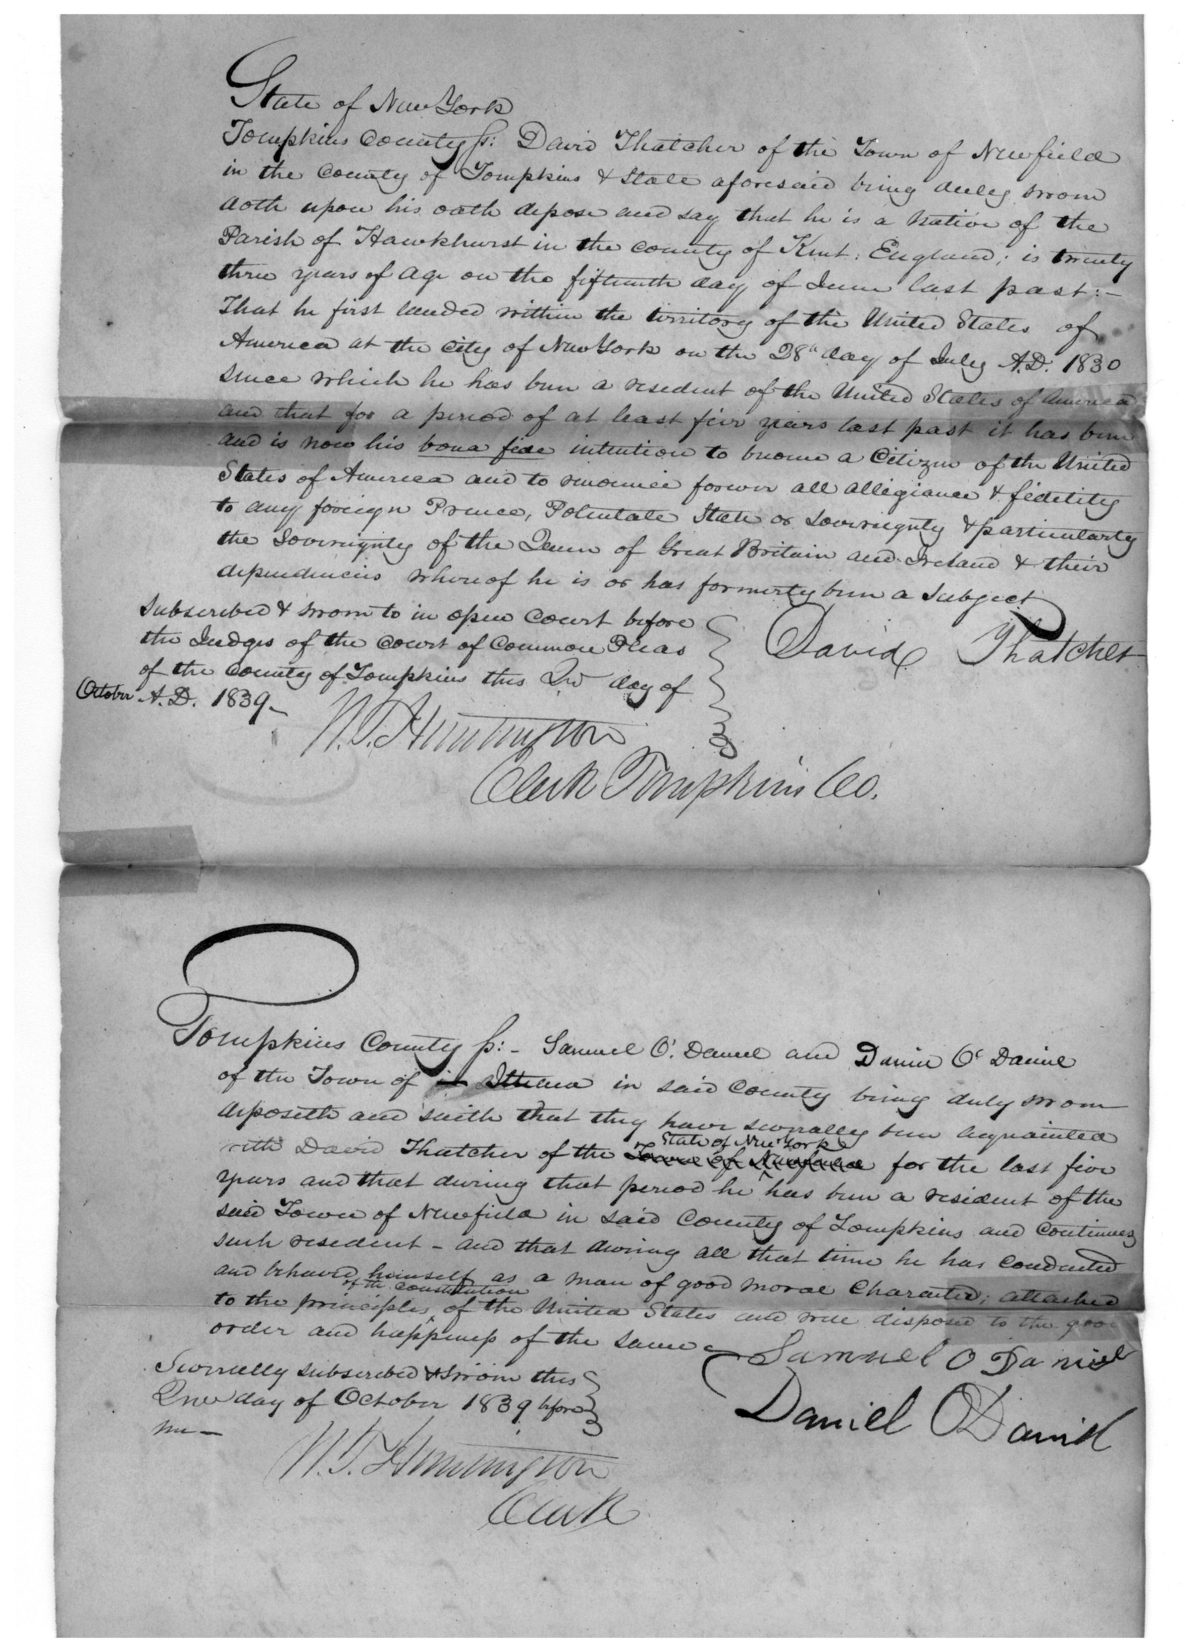 State of New York
Tompkins County ss: David Thatcher of the Town of Newfield
in the County of Tompkins & State aforesaid being duly sworn
doth upon his oath depose and say that he is a Native of the
Parish of Hawkhurst in the county of Kent, England; is twenty
three years of age on the fifteenth day of June last past:-
That he first landed within the territory of the United States of
America at the city of New York on the 28th day of July A.D. 1830
since which he has been a resident of the United States of America
and that for a period of at least five years last past it has been
and is now his bona fide intention to become a Citizen of the United
States of America and to renounce forever all allegiance & fidelity
to any foreign Prince, Potentate State or Sovereignty & particularly
the Sovereignty of the Queen of Great Britain and Ireland & their
dependencies whereof he is or has formerly been a Subject
Subscribed & sworn to in open Court before
the Judges of the Court of Common Pleas
of the County of Tompkins this 2nd day of
October A.D. 1839-
David Thatcher
Huntington
Clerk Tompkins Co.
Tompkins County ss:- Samuel O'. Daniel and Daniel O'Daniel
of the Town of in Ithaca in said County being duly sworn
deposeth and saith that they have severally been acquainted
State of New York
with David Thatcher of the Town of Newfield for the last five
years and that during that period he has been a resident of the
said Town of Newfield in said County of Tompkins and continues
such resident - and that during all that time he has conducted
and behaved himself as a man of good moral Character; attached
of the Constitution
to the principles of the United States and well disposed to the good
order and happiness of the same
Severally subscribed & sworn this
2nd day of October 1839 before
me-
Samuel O Daniel
Daniel O Daniel
Huntington
Clerk